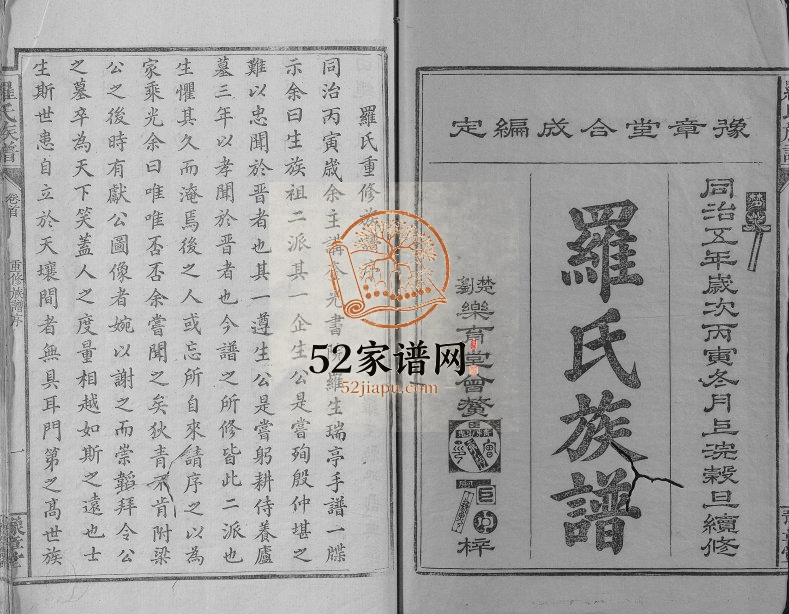 豫章堂合成編定
同治五年歲次丙寅冬月上浣穀旦續修
羅氏族譜
楚
劉
樂育堂會
梓
羅氏重修族譜
同治丙寅歲余主講 光書 羅生瑞亭手譜一牒
示余曰生族祖二派其一企生公是嘗殉殷仲堪之
難以忠聞於晋者也其一遵生公是嘗躬耕侍養廬
墓三年以孝聞於晋者也今譜之所修皆此二派也
生懼其久而淹焉後之人或忘所自來請序之以為
家乘光余曰唯唯否否余嘗聞之矣狄青不肯附梁
公之後時有獻公圖像者婉以謝之而崇韜拜令公
之墓卒為天下笑蓋人之度量相越如斯之遠也士
生斯世患自立於天壤間者無具耳門第之高世族
羅氏族譜
卷首
重修族譜序
一
52家谱网
52jiapu.com